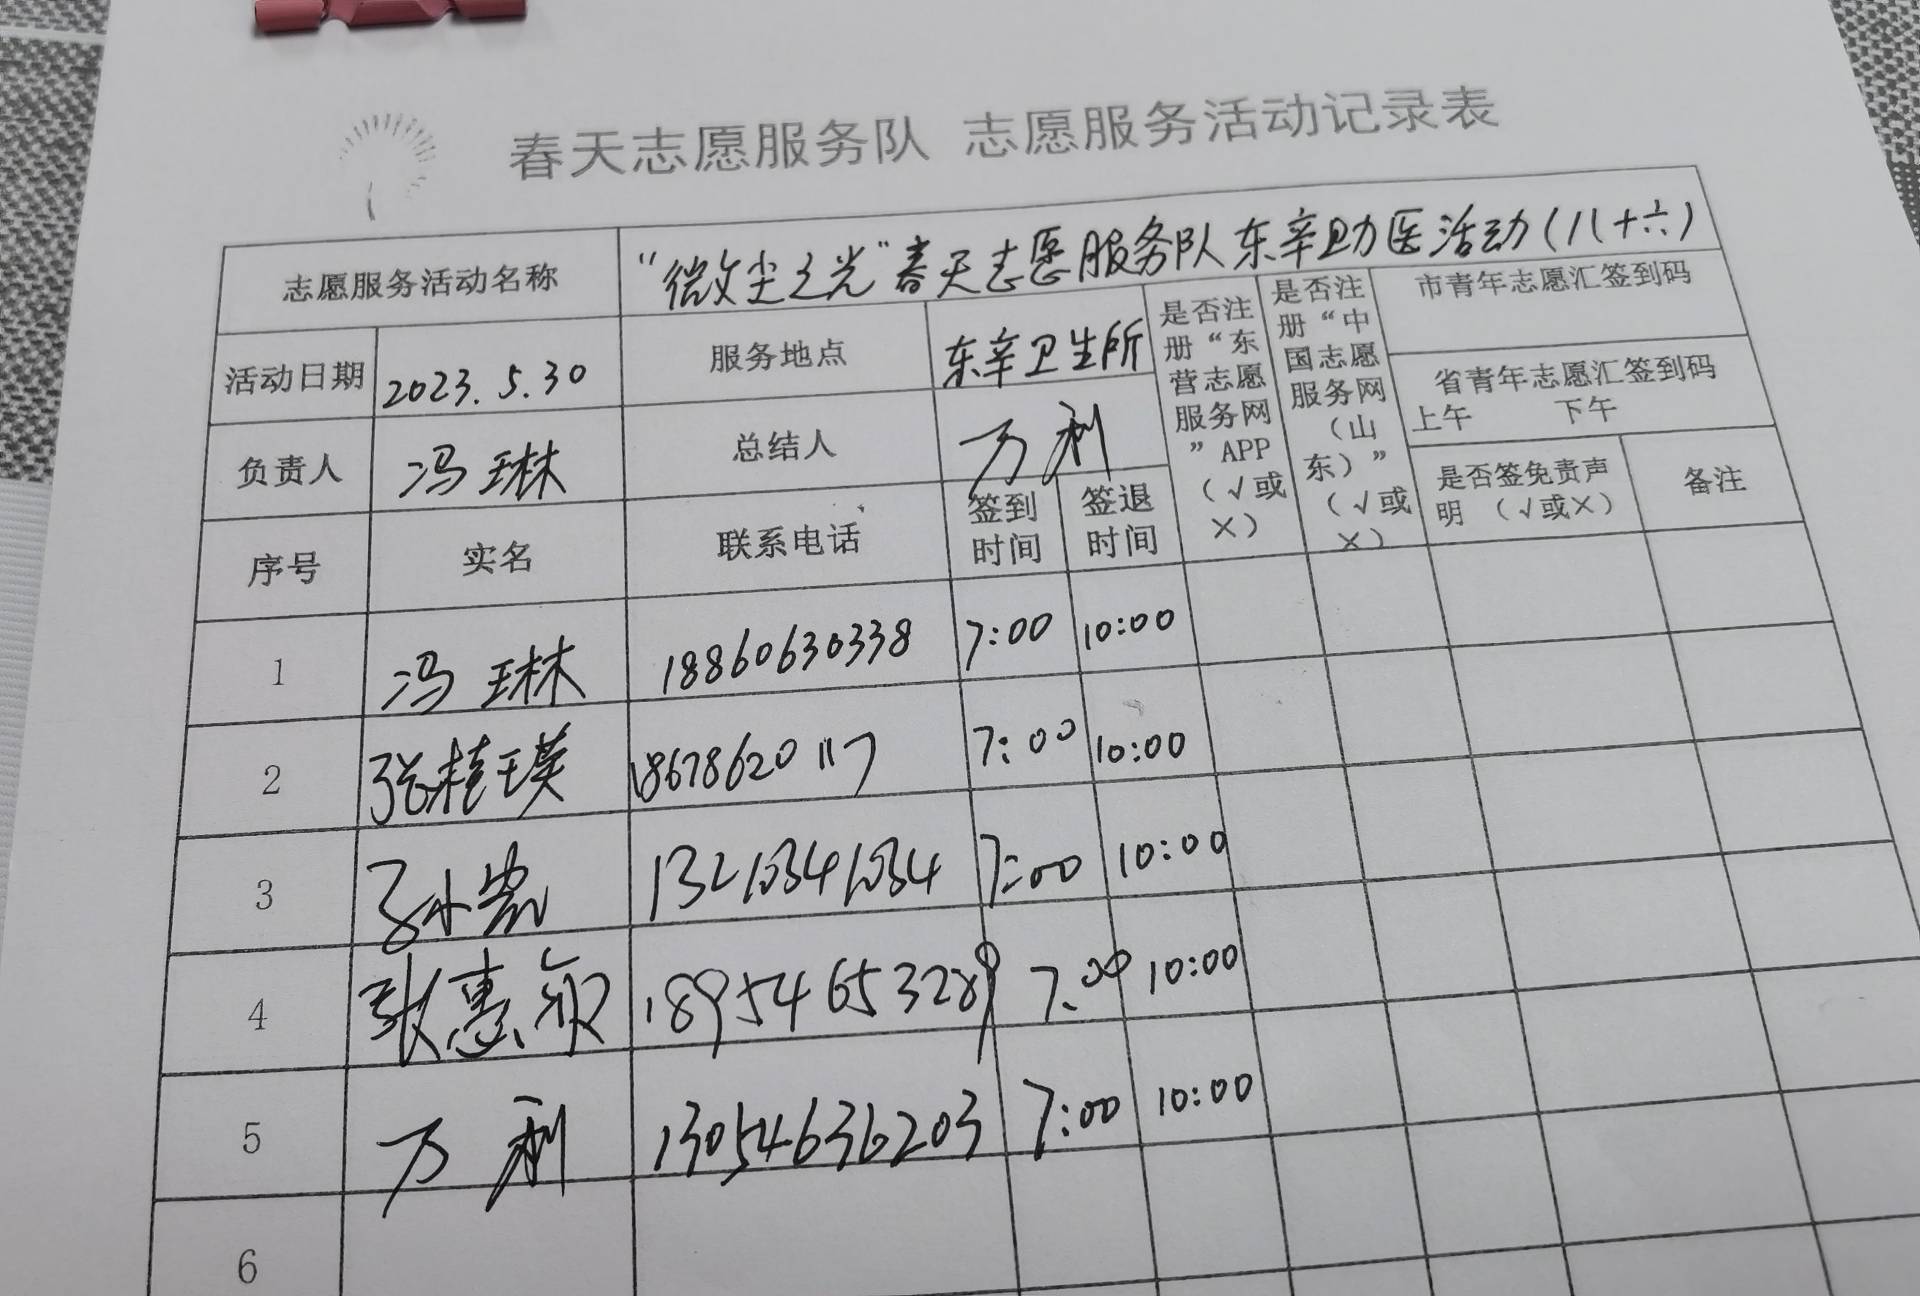 春天志愿服务队 志愿服务活动记录表
志愿服务活动名称 “微尘之光”春天志愿服务队东辛助医活动(八十六)
活动日期 2023.5.30 服务地点 东辛卫生所
是否注册“东营志愿服务网”APP（√或×）
是否注册“中国志愿服务网（山东）”（√或×）
市青年志愿汇签到码
省青年志愿汇签到码
上午 下午
负责人 冯琳 总结人 万利
是否签免责声明（√或×） 备注
序号 实名 联系电话 签到时间 签退时间
1 冯琳 18860630338 7:00 10:00
2 张桂瑛 18678620117 7:00 10:00
3 孙凯 13210341034 7:00 10:00
4 张惠 18954653289 7:00 10:00
5 万利 13054636203 7:00 10:00
6